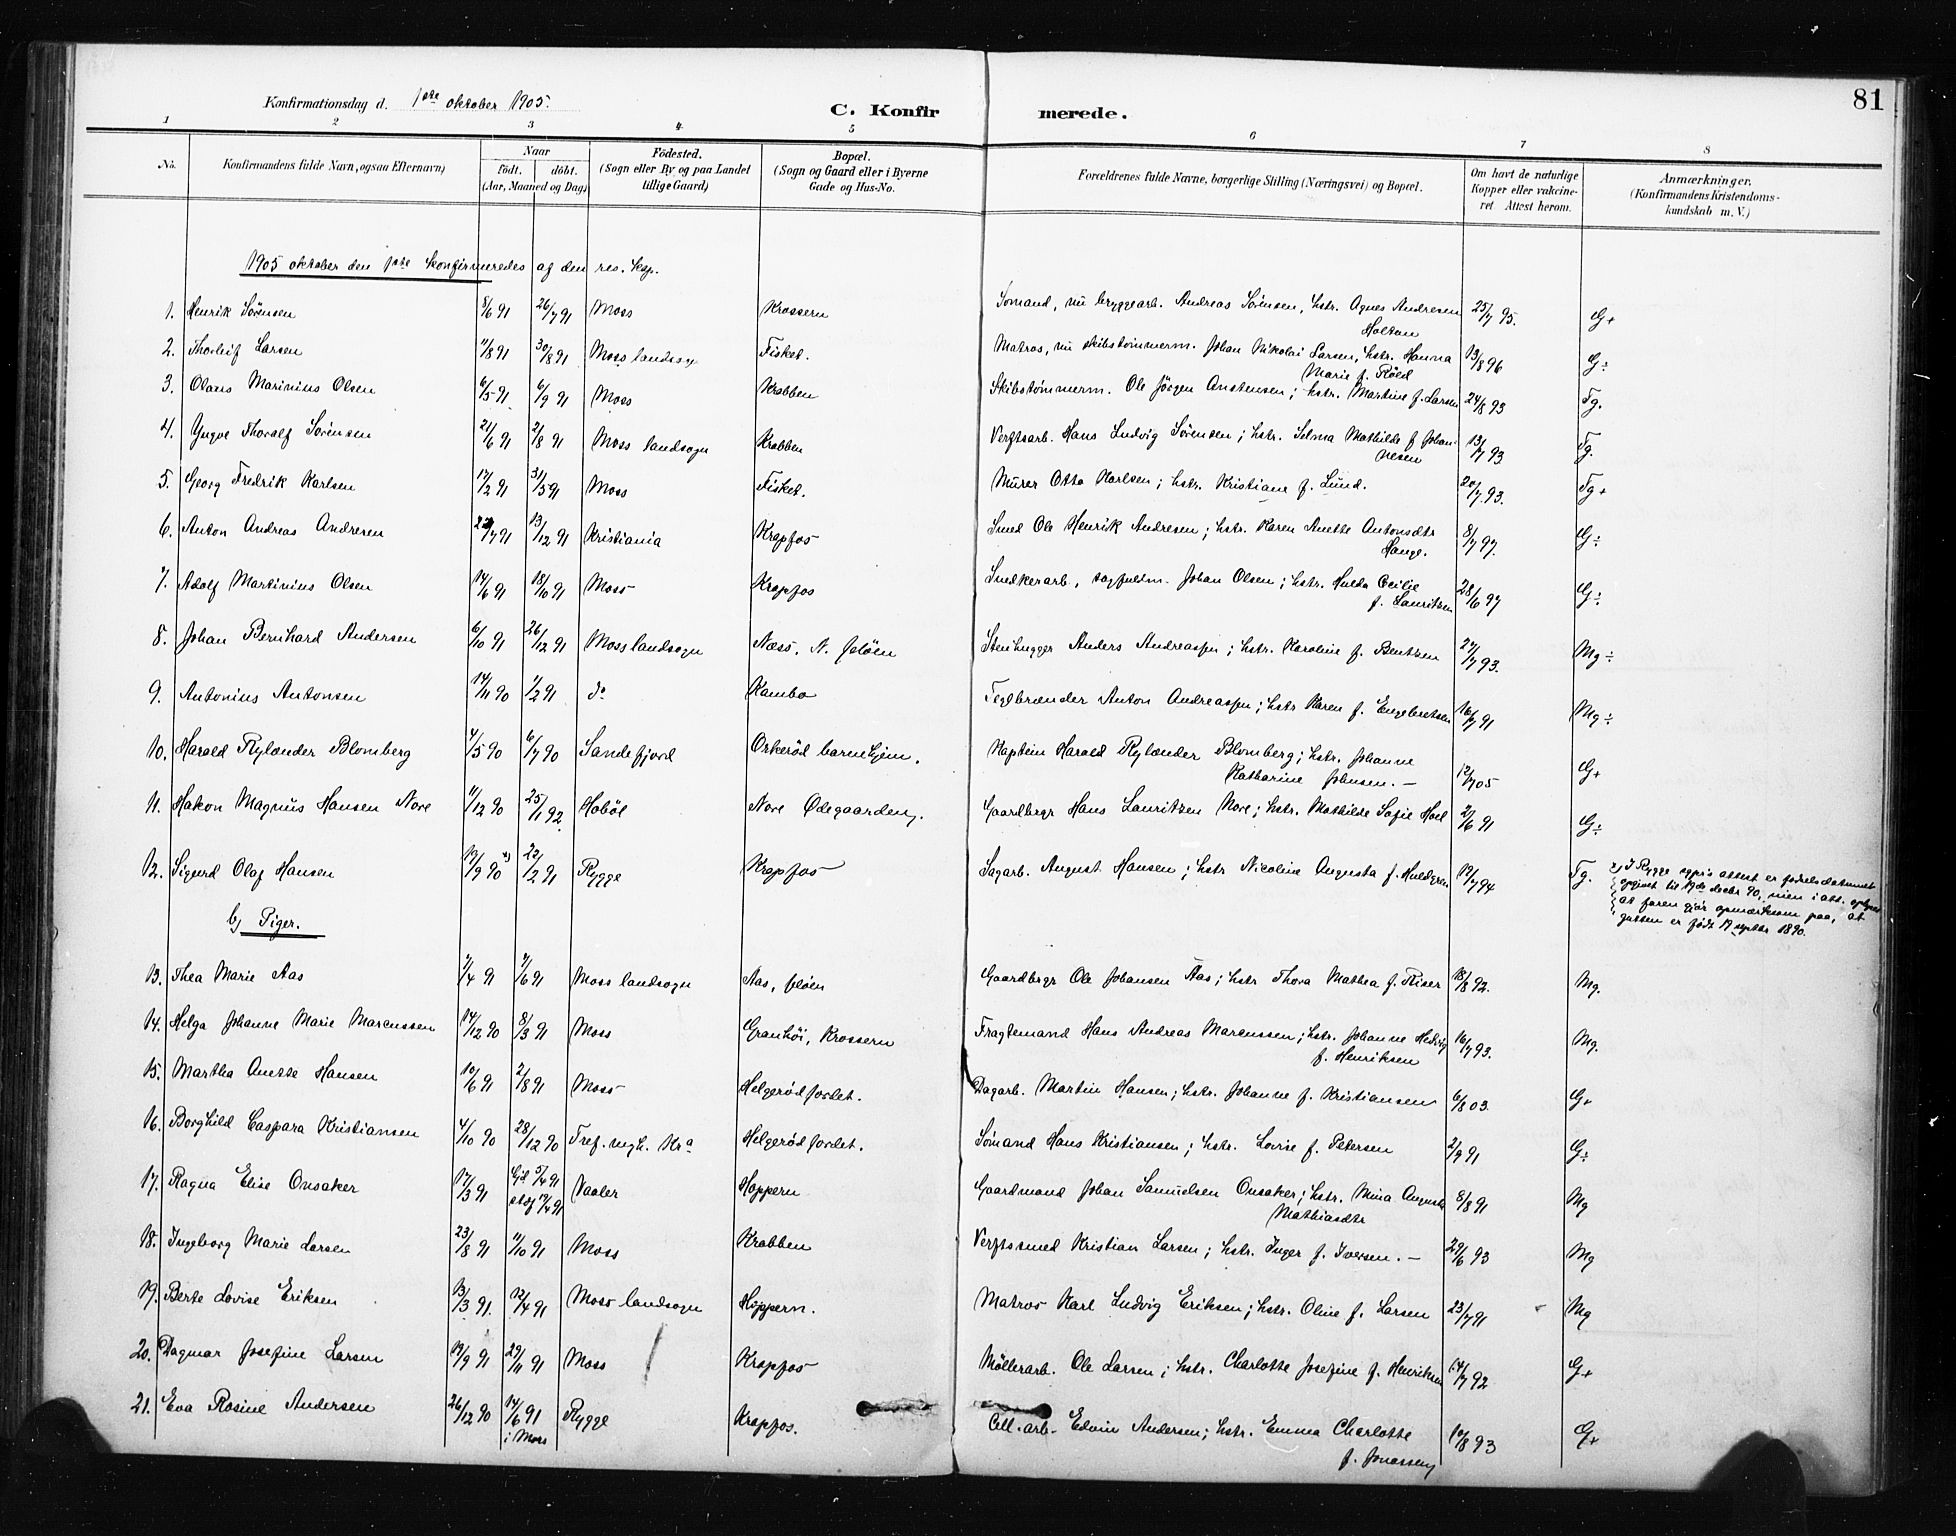 81
Konfirmationsdag d. 1ste oktober 1905.
C. Konfirmerede.
1 2 3 4 5 6 7 8
No. Konfirmandens fulde Navn, ogsaa Efternavn) Naar født. døbt. (Aar, Maaned og Dag) Fødested. (Sogn eller By og paa Landet tillige Gaard) Bopæl. (Sogn og Gaard eller i Byerne Gade og Hus-No. Forældrenes fulde Navne, borgerlige Stilling (Næringsvei) og Bopæl. Om havt de naturlige Kopper eller vakcineret. Attest herom. Anmærkninger. (Konfirmandens Kristendomskundskab m. V.)
1905 oktober den 1ste konfirmeredes af den res. kap.
1. Henrik Sørensen 8/6 91 26/7 91 Moss Krossern Sømand, nu bryggearb. Andreas Sørensen, hstr. Agnes Andresen Holtan 25/7 95. G+
2. Thorleif Larsen 11/8 91 30/8 91 Moss landsogn Fisket. Matros, nu skibstømmerm. Johan Nikolai Larsen, hstr. Hanna Marie f. Röed 13/8 96 G÷
3. Olaus Marinius Olsen 6/5 91 6/9 91 Moss Krabben Skibstømmerm. Ole Jörgen Anstensen; hstr. Martine f. Larsen 24/8 93 Tg.
4. Yngve Thoralf Sørensen 21/6 91 2/8 91 Moss landsogn Krabben Verftsarb. Hans Ludvig Sørensen; hstr. Selma Mathilde f. Johannesen 13/7 93 Tg.
5. Georg Fredrik Karlsen 17/2 91 31/5 91 Moss Fisket. Murer Otto Karlsen; hstr. Kristiane f. Lund. 20/7 93. Tg+
6. Anton Andreas Andresen /7 91 13/12 91 Kristiania Krapfos Smed Ole Henrik Andresen; hstr. Karen Anette Antonsdtr Hauge. 8/7 97. G÷
7. Adolf Martinius Olsen 14/6 91 18/10 91 Moss Krapfos Snedkerarb, Johan Olsen; hstr. Hulda Cecilie f. Lauritzen 28/6 97 G÷
8. Johan Bernhard Andersen 6/10 91 26/12 91 Moss landsogn Næss. N. Jeløen Stenhugger Anders Andreassen; hstr. Karoline f. Bentzen 27/7 93. Mg÷
9. Antonius Antonsen 14/11 90 1/2 91 do Kambo Teglbrænder Anton Andreassen; hstr Karen f. Engebretsen 16/7 91 Mg÷
10. Harald Rylander Blomberg 4/5 90 6/7 90 Sandefjord Orkerød barnehjem. Kaptein Harald Rylander Blomberg; hstr. Johanne Katharine Johnsen. — 12/7 05 G+
11. Hakon Magnus Hansen Nore 11/12 90 25/1 92. Hobøl Nore Ødegaarden. Gaardbrgr Hans Lauritzen Nore; hstr. Mathilde Sofie Hoel 2/6 91 G÷
12. Sigurd Olaf Hansen 19/9 90 x) 22/2 91 Rygge Krapfos Sagarb. August Hansen; hstr Nicoline Augusta f. Huldgren 19/7 94 Tg. x) I Rygge sgpr's attest er fødselsdatumet
opgivet til 19de decbr 90, men i att. oplyses
at faren gjør opmærksom paa, at
gutten er født 19 septbr 1890.
b) Piger.
13. Thea Marie Aas 7/4 91 7/6 91 Moss landsogn Aas, Jeløen Gaardbrgr Ole Johansen Aas; hstr Thora Mathea f. Riser 18/8 92. Mg.
14. Helga Johanne Marie Marcussen 14/12 90 8/3 91 Moss Granhöi, Krossern Fragtemand Hans Andreas Marcussen; hstr. Johanne Hedvig f. Henriksen 16/7 93. Mg.
15. Martha Anette Hansen 10/6 91 2/8 91 Moss Helgerødfordet. Dagarb. Martin Hansen; hstr. Johanne f. Kristiansen 6/8 03. G+
16. Borghild Caspara Kristiansen 4/10 90 28/12 90 Tref. mgh. Kra Helgerødfordet. Sømand Hans Kristiansen; hstr. Lovise f. Petersen 2/9 91 G÷
17. Ragna Elise Onsaker 17/3 91 Gjd 5/4 91 stadf 19/4 91 Vaaler Hoppern Gaardmand Johan Samuelsen Onsaker; hstr. Mina Augusta Mathiasdtr 8/8 91 Mg
18. Ingeborg Marie Larsen 23/8 91 11/10 91 Moss Krabben Verftssmed Kristian Larsen; hstr. Inger f. Iversen. — 29/6 93 Mg
19. Berte Lovise Eriksen 13/3 91. 12/4 91 Moss landsogn Hoppern. Matros Karl Ludvig Eriksen; hstr. Oline f. Larsen 23/7 91 Mg
20. Dagmar Josefine Larsen 19/9 91 29/11 91 Moss Krapfos Möllerarb. Ole Larsen; hstr. Charlotte Josefine f. Henriksen 14/7 92 G+
21. Eva Rosine Andersen 26/12 90 14/6 91 i Moss Rygge Krapfos. Cell. arb. Edvin Andersen; hstr. Emma Charlotte f. Jonassen 10/8 93 G+